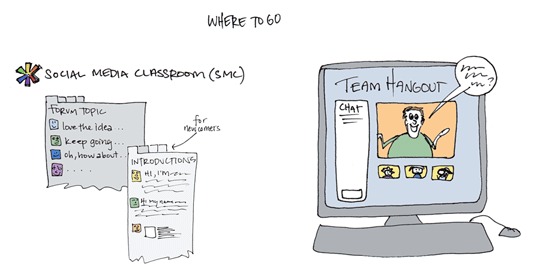 WHERE TO GO
SOCIAL MEDIA CLASSROOM (SMC)
FORUM TOPIC
love the idea...
keep going...
oh, how about...
.....
for newcomers
INTRODUCTIONS
HI, I'M
Hi my name
TEAM HANGOUT
CHAT